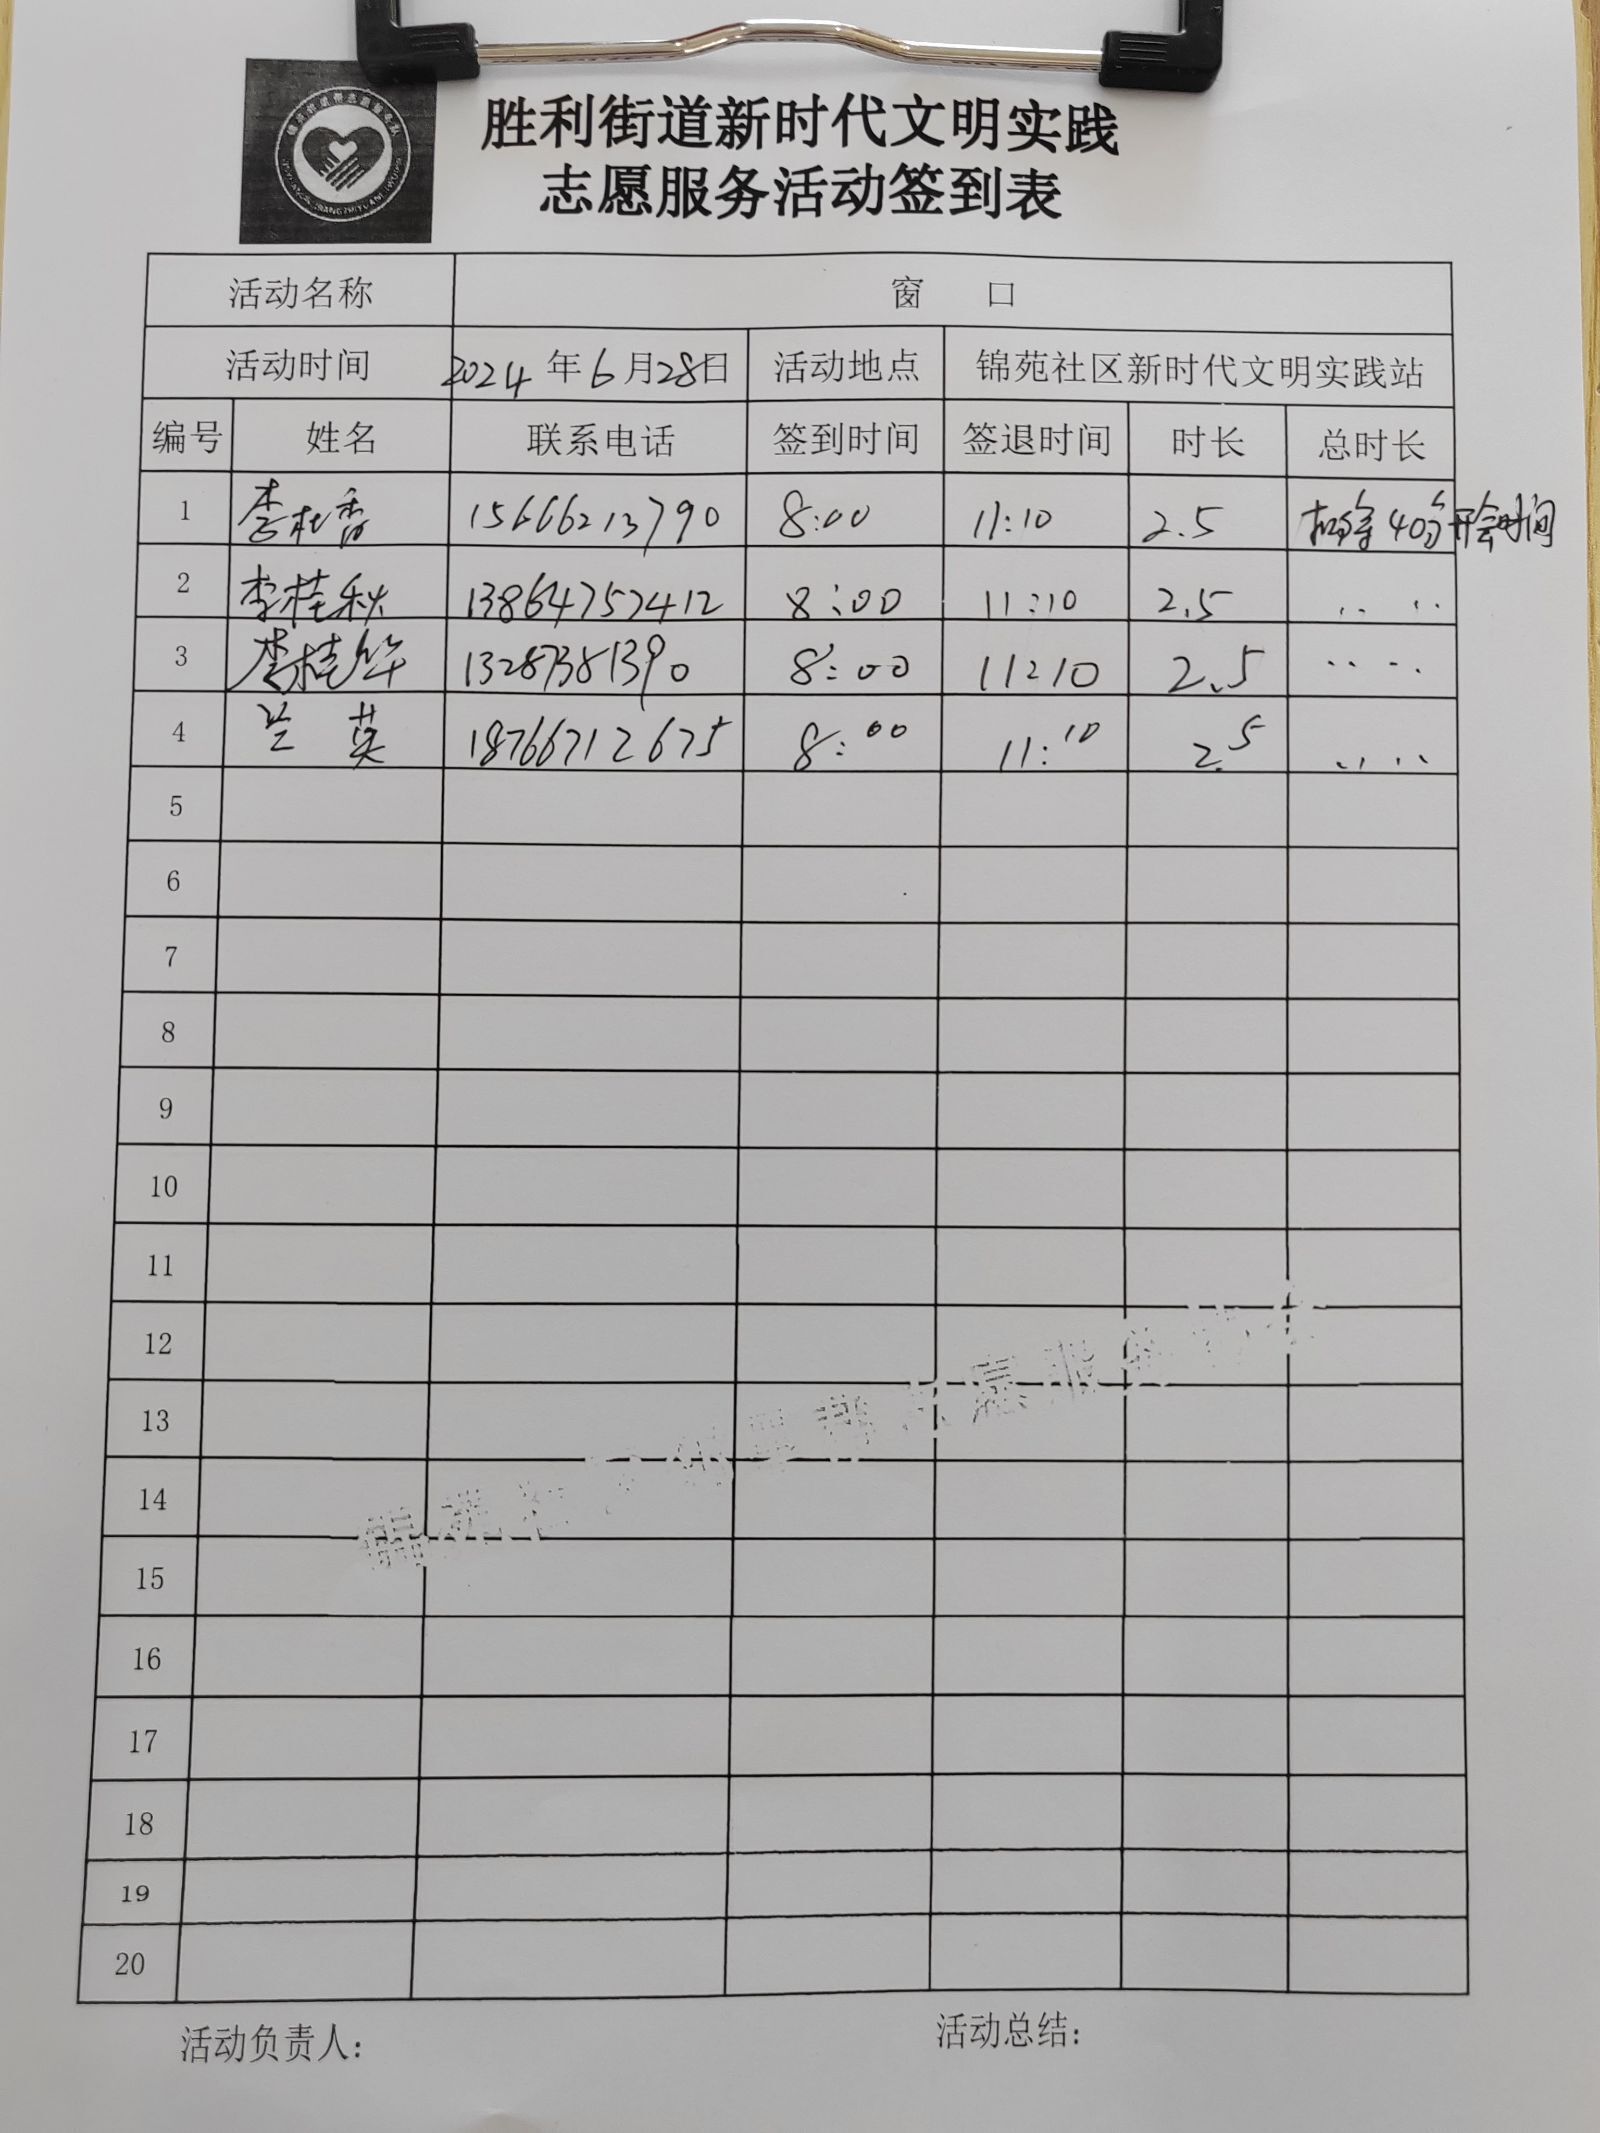 胜利街道新时代文明实践
志愿服务活动签到表
活动名称 窗 口
活动时间 2024年6月28日 活动地点 锦苑社区新时代文明实践站
编号 姓名 联系电话 签到时间 签退时间 时长 总时长
1 李桂香 15666213790 8:00 11:10 2.5 扣除40分开会时间
2 李桂秋 13864757412 8:00 11:10 2.5 ‥ ‥
3 李桂华 13287381390 8:00 11:10 2.5 ‥ ‥
4 兰英 18766712675 8:00 11:10 2.5 ‥ ‥
5
6
7
8
9
10
11
12
13
14
15
16
17
18
19
20
活动负责人: 活动总结: